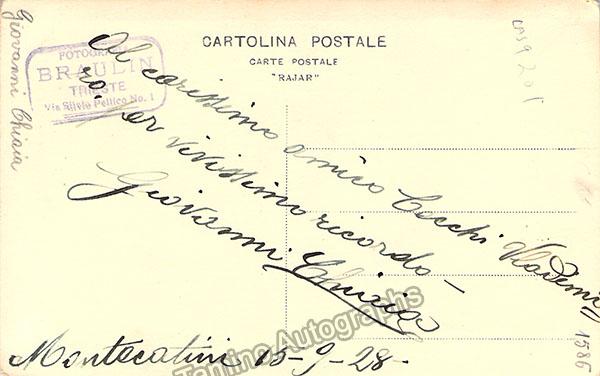 CARTOLINA POSTALE
CARTE POSTALE
"RAJAR"
FOTOGRAFIA
BRAULIN
TRIESTE
Via Silvio Pellico No. 1
Giovanni Chiaia
Al carissimo amico Cecchi Vladimi
ro, per vivissimo ricordo -
Giovanni Chiaia
Montecatini 15-9-28-
1586
Tamino Autographs